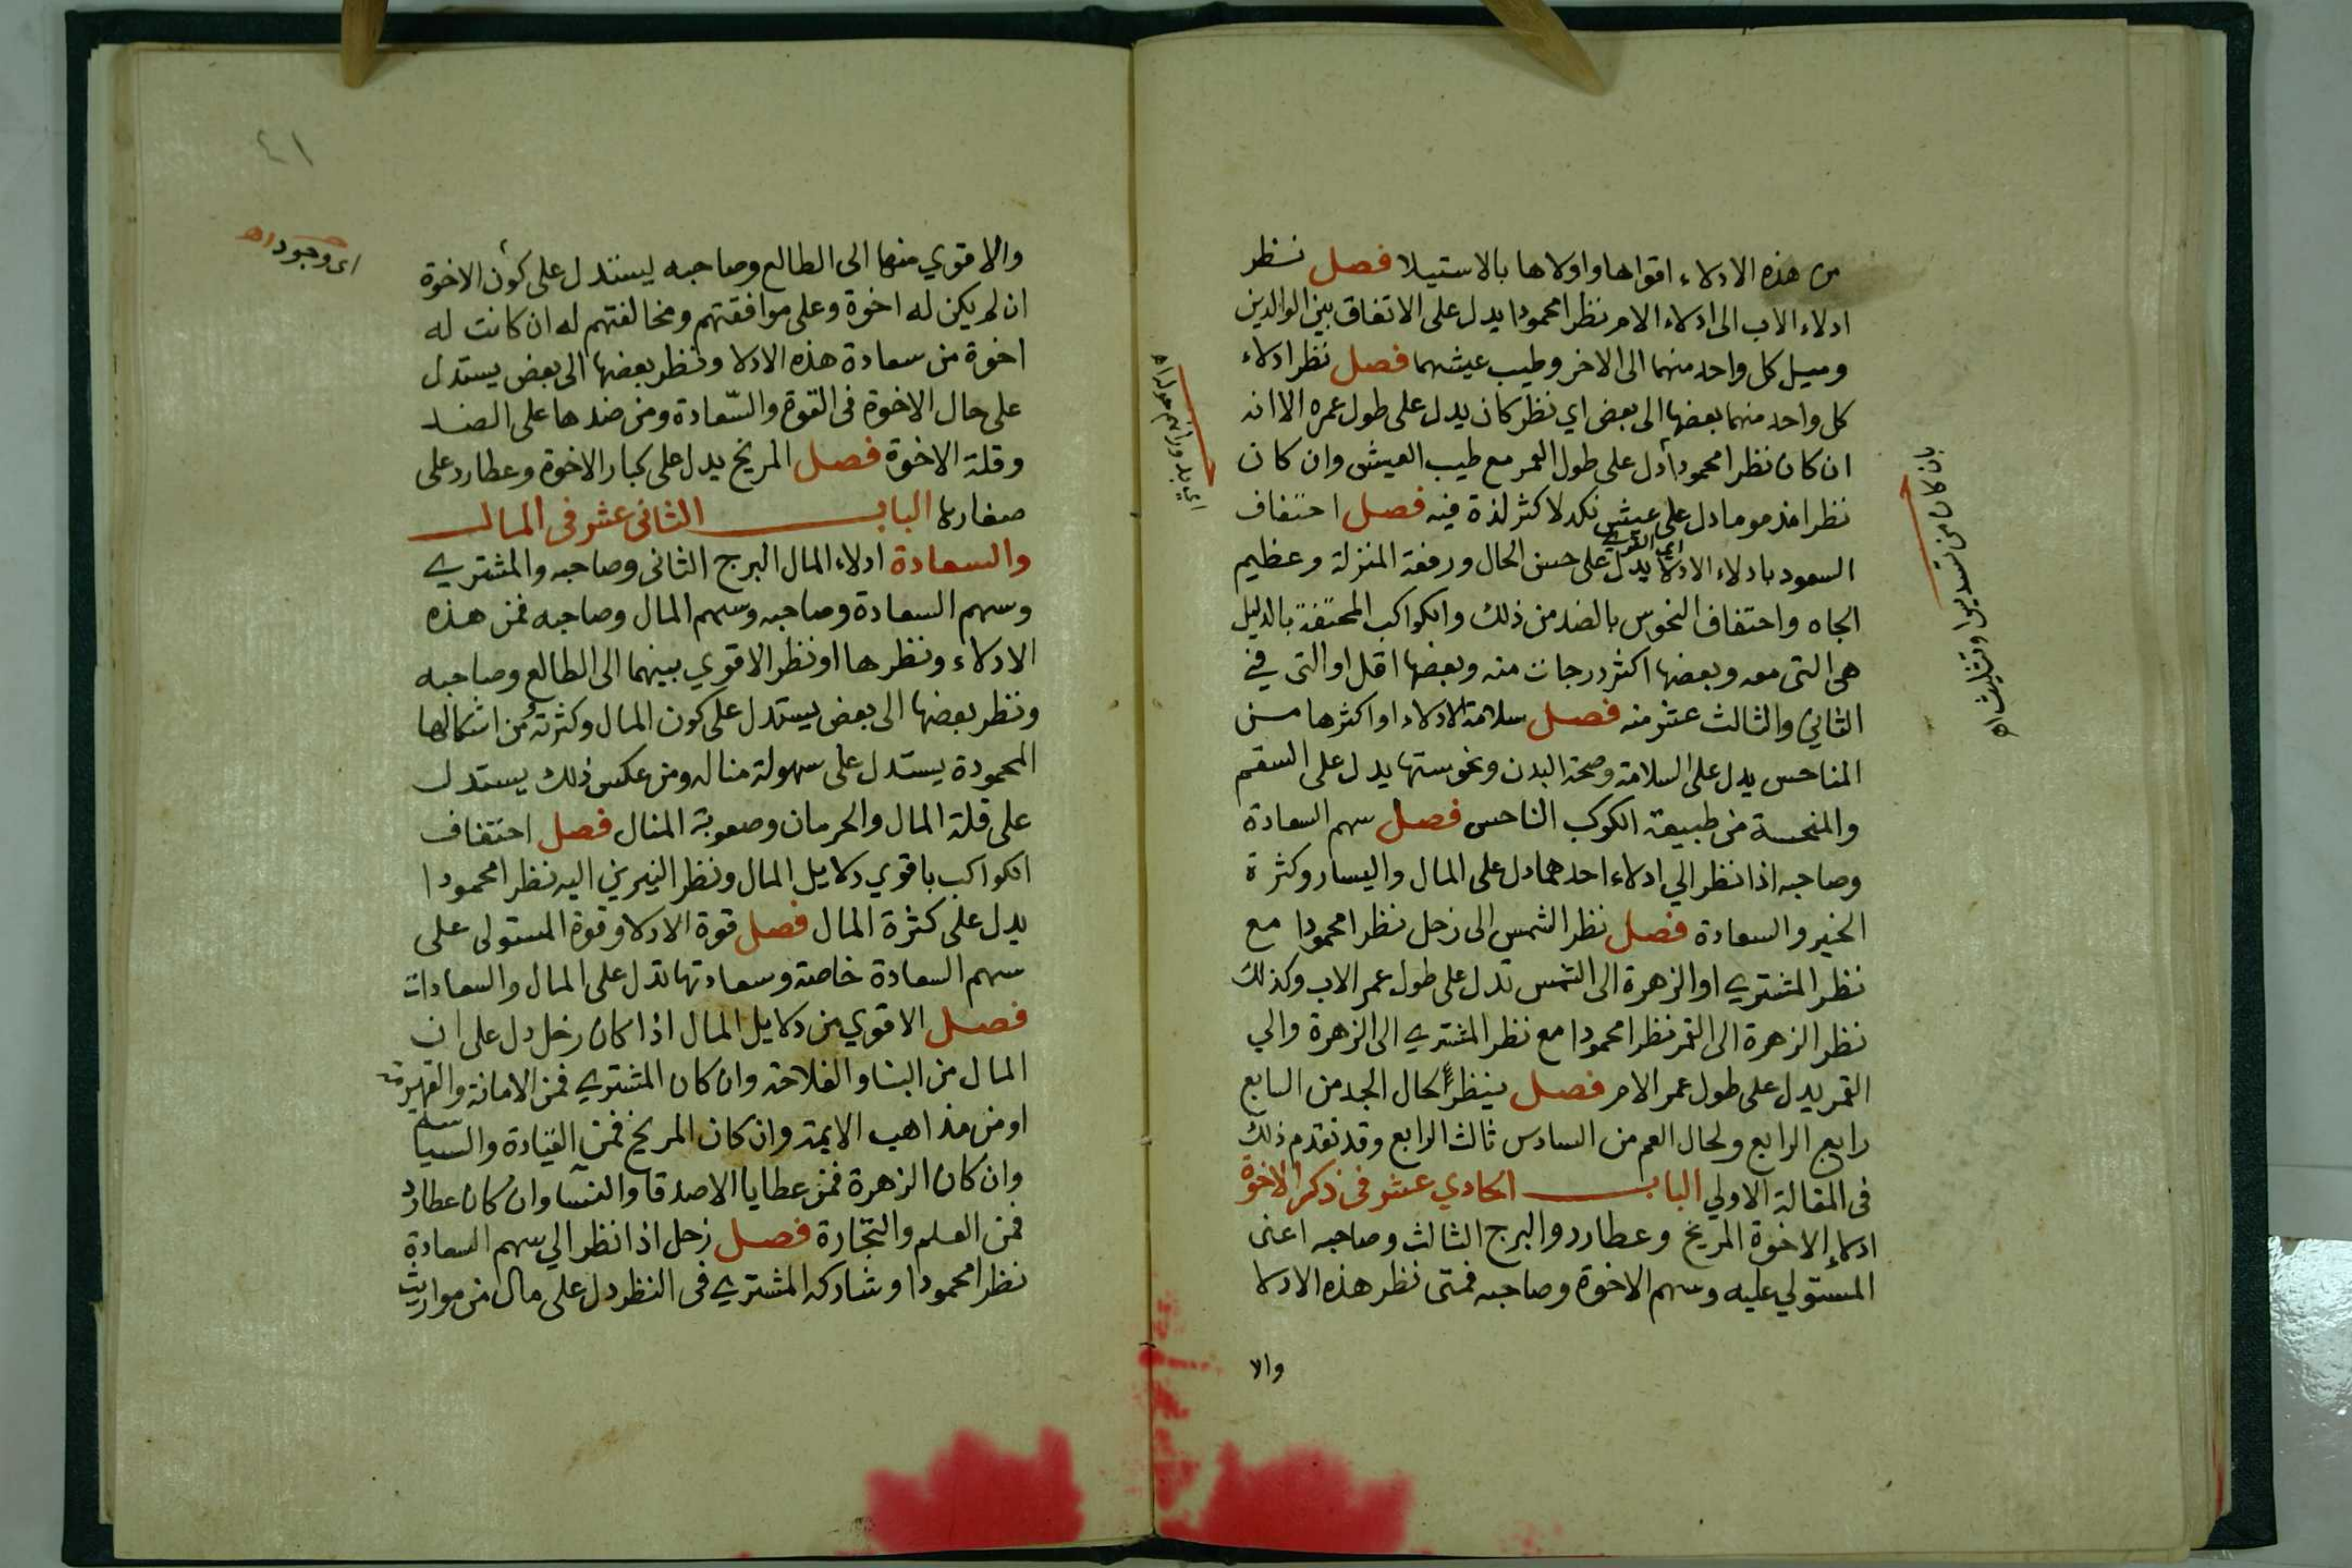 من هذه الادلاء اقواها واولاها بالاستيلا فصل نظر
ادلاء الاب الى ادلاء الام نظرا محمودا يدل على الاتفاق بين الوالدين
وميل كل واحد منهما الى الاخر وطيب عيشهما فصل نظر ادلاء
كل واحد منهما بعضها الى بعض اي نظر كان يدل على طول عمره الا انه
ان كان نظرا محمودا دل على طول العمر مع طيب العيش وان كان
نظرا مذموما دل على عيش نكد لا كثر لذة فيه فصل احتفاف
السعود بادلاء الادلا يدل على حسن الحال ورفعة المنزلة وعظيم
الجاه واحتفاف النحوس بالضد من ذلك والكواكب المحتفة بالدليل
هى التى معه وبعضها اكثر درجات منه وبعضها اقل او التى في
الثاني والثالث عشر منه فصل سلامة الادلاء او اكثرها من
المناحس يدل على السلامة وصحة البدن ونحوستها يدل على السقم
والمنحسة من طبيعة الكوكب الناحس فصل سهم السعادة
وصاحبه اذا نظر الي ادلاء احدهما دل على المال واليسار وكثرة
الخير والسعادة فصل نظر الشمس الى زحل نظرا محمودا مع
نظر المشتري او الزهرة الى الشمس تدل على طول عمر الاب وكذلك
نظر الزهرة الى القمر نظرا محمودا مع نظر المشتري الى الزهرة والي
القمر يدل على طول عمر الام فصل ينظر لحال الجد من السابع
رابع الرابع ولحال العم من السادس ثالث الرابع وقد تقدم ذلك
فى المقالة الاولي الباب الحادي عشر فى ذكر الاخوة
ادلاء الاخوة المريخ وعطارد والبرج الثالث وصاحبه اعنى
المستولي عليه وسهم الاخوة وصاحبه فمتى نظر هذه الادلا
والا
بان كان من تسديس او تثليث اه
٤١
والاقوي منها الى الطالع وصاحبه ليستدل على كون الاخوة
اى وجود اه
ان لم يكن له اخوة وعلى موافقتهم ومخالفتهم له ان كانت له
اخوة من سعادة هذه الادلا ونظر بعضها الى بعض يستدل
على حال الاخوة فى القوة والسّعادة ومن ضدها على الضد
وقلة الاخوة فصل المريخ يدل على كبار الاخوة وعطارد على
صغاره الباب الثانى عشر فى المال
والسعادة ادلاء المال البرج الثانى وصاحبه والمشتري
وسهم السعادة وصاحبه وسهم المال وصاحبه فمن هذه
الادلاء ونظرها او نظر الاقوي بينهما الى الطالع وصاحبه
ونظر بعضها الى بعض يستدل على كون المال وكثرته من اشكالها
المحمودة يستدل على سهولة مناله ومن عكس ذلك يستدل
على قلة المال والحرمان وصعوبة المنال فصل احتفاف
الكواكب باقوي دلايل المال ونظر النيرين اليه نظرا محمودا
يدل على كثرة المال فصل قوة الادلا وقوة المستولى على
سهم السعادة خاصة وسعادتها تدل على المال والسعادات
فصل الاقوي من دلايل المال اذا كان زحل دل على ان
المال من البنا والفلاحة وان كان المشتري فمن الامانة والقهرمة
او من مذاهب الايمة وان كان المريخ فمن القيادة والسياسة
وان كان الزهرة فمن عطايا الاصدقا والنسا وان كان عطارد
فمن العلم والتجارة فصل زحل اذا نظر الي سهم السعادة
نظرا محمودا وشاركه المشتري فى النظر دل على مال من مواريث